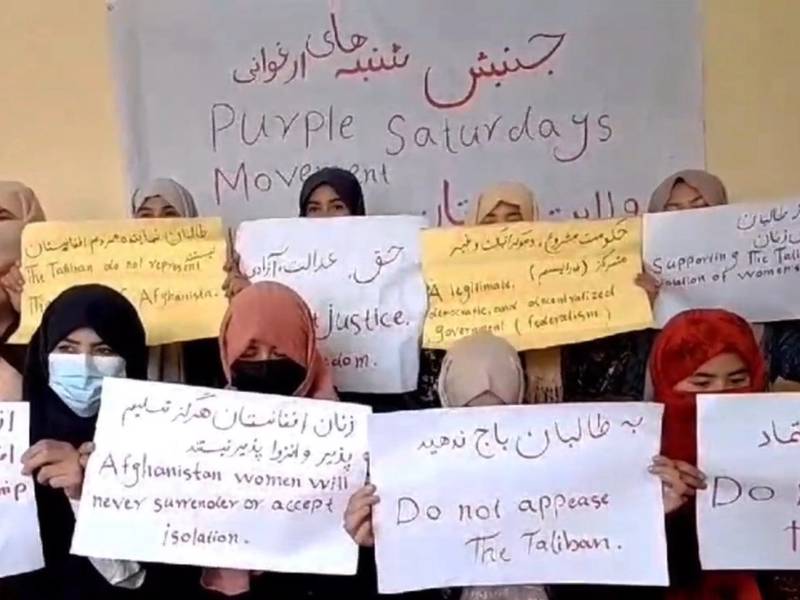 جنبش شنبه های ارغوانی
Purple Saturdays
Movement
ولایت
طالبان نماینده مردم افغانستان
نیستند
The Taliban do not represent
The
of Afghanista.
حق، عدالت، آزادی
justice.
dom.
حکومت مشروع، دموکراتیک و غیر
متمرکز (فدرالیسم)
A legitimate,
democratic, and decentralized
government (federalism)
طالبان
زنان
Supporting The Tali
olation of women's
زنان افغانستان هرگز تسلیم
پذیر و انزوا پذیر نیستند
Afghanistan women will
never surrender or accept
isolation.
به طالبان باج ندهید
Do not appease
The Taliban.
تماد
Do